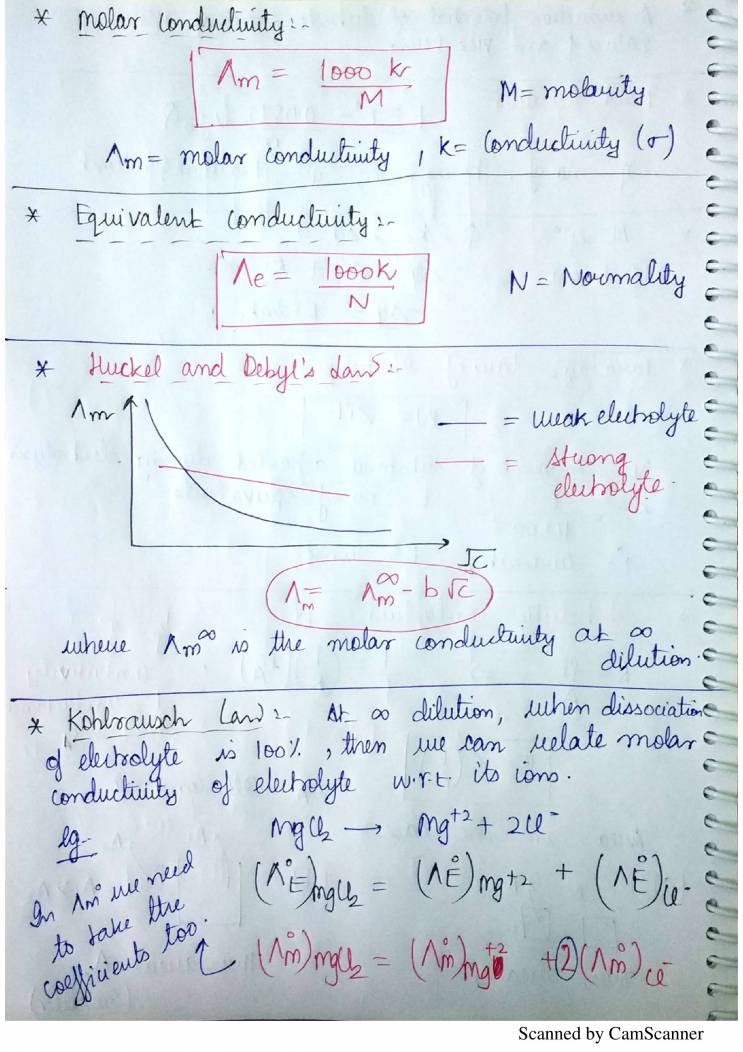 * Molar Conductivity :-
Λm = 1000 k / M
M = molarity
Λm = molar conductivity , k = Conductivity (σ)
* Equivalent Conductivity :-
Λe = 1000k / N
N = Normality
* Huckel and Debyl's Law :-
Λm
—— = weak electrolyte
—— = strong
electrolyte.
√C
Λm = Λm∞ - b √c
where Λm∞ is the molar conductivity at ∞
dilution.
* Kohlrausch Law :- At ∞ dilution, when dissociation
of electrolyte is 100% , then we can relate molar
conductivity of electrolyte w.r.t its ions.
eg- MgCl2 → Mg+2 + 2Cl-
(Λ°E)MgCl2 = (Λ°E)Mg+2 + (Λ°E)Cl-
In Λm° we need
to take the
coefficients too.
(Λm°)MgCl2 = (Λm°)Mg+2 + 2(Λm°)Cl-
Scanned by CamScanner